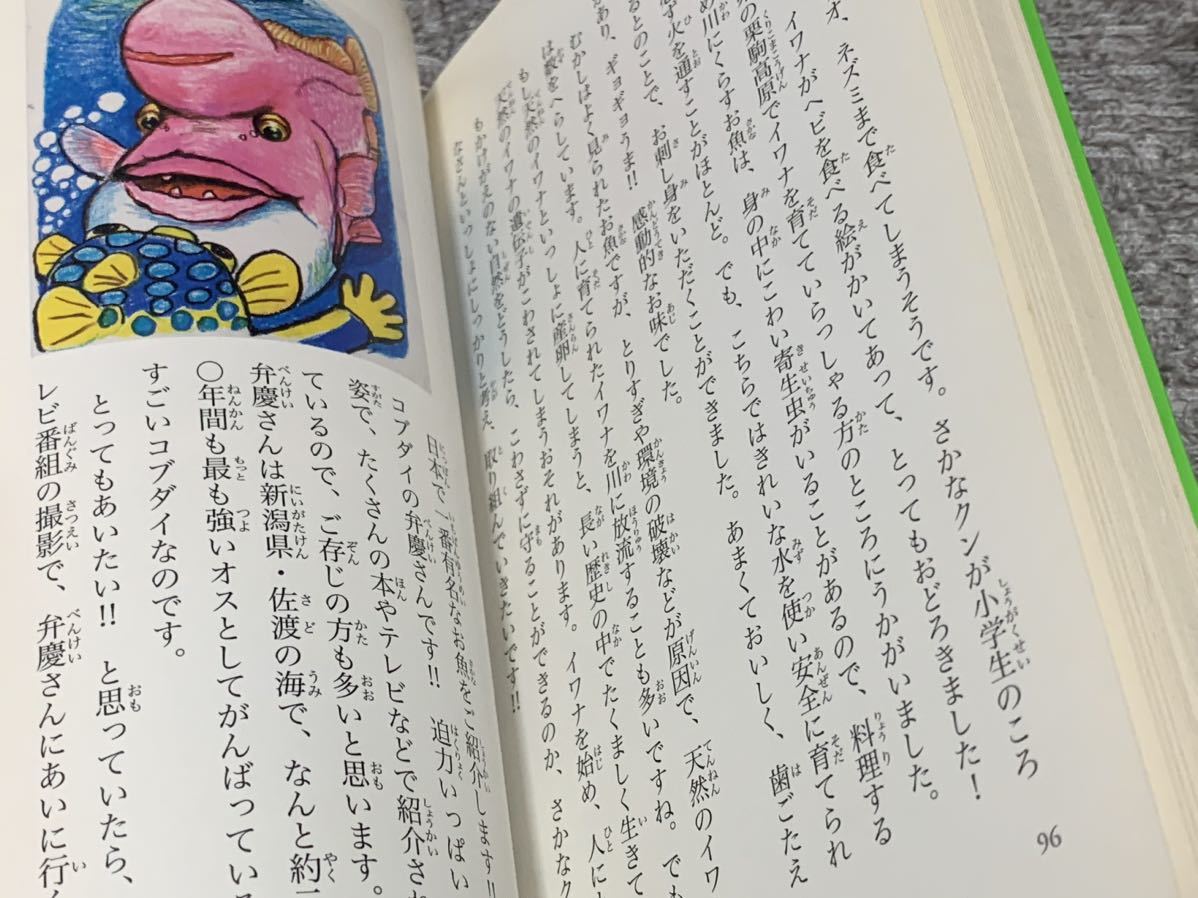 オ、ネズミまで食べてしまうそうです。さかなクンが小学生のころ
イワナがヘビを食べる絵がかいてあって、とってもおどろきました！
の栗駒高原でイワナを育てていらっしゃる方のところにうかがいました。
め川にくらすお魚は、身の中にこわい寄生虫がいることがあるので、料理する
ず火を通すことがほとんど。でも、こちらではきれいな水を使い安全に育てられ
るとのことで、お刺し身をいただくことができました。あまくておいしく、歯ごたえ
あり、ギョギョうま!! 感動的なお味でした。
むかしはよく見られたお魚ですが、とりすぎや環境の破壊などが原因で、天然のイワ
は数をへらしています。人に育てられたイワナを川に放流することも多いですね。でも
もし天然のイワナといっしょに産卵してしまうと、長い歴史の中でたくましく生きて
天然のイワナの遺伝子がこわされてしまうおそれがあります。イワナを始め、人に
もかけがえのない自然をどうしたら、こわさずに守ることができるのか、さかなク
なさんといっしょにしっかりと考え、取り組んでいきたいです!!
96
日本で一番有名なお魚をご紹介します!!
コブダイの弁慶さんです!! 迫力いっぱい
姿で、たくさんの本やテレビなどで紹介され
ているので、ご存じの方も多いと思います。
弁慶さんは新潟県・佐渡の海で、なんと約二
〇年間も最も強いオスとしてがんばっている
すごいコブダイなのです。
とってもあいたい!! と思っていたら、
レビ番組の撮影で、弁慶さんにあいに行く